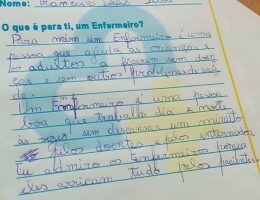 Nome:
O que é para ti, um Enfermeiro?
Para mim um Enfermeiro é uma
pessoa que ajuda as crianças e
os adultos a ficarem sem doen-
ças e sem outros problemas de saú-
de.
Um Enfermeiro é uma pessoa
boa que trabalha dia e noite
às vezes sem discansar um minuto
pelos doentes e pelos internados
Eu admiro os enfermeiros porque
eles arriscam tudo pelos pacientes